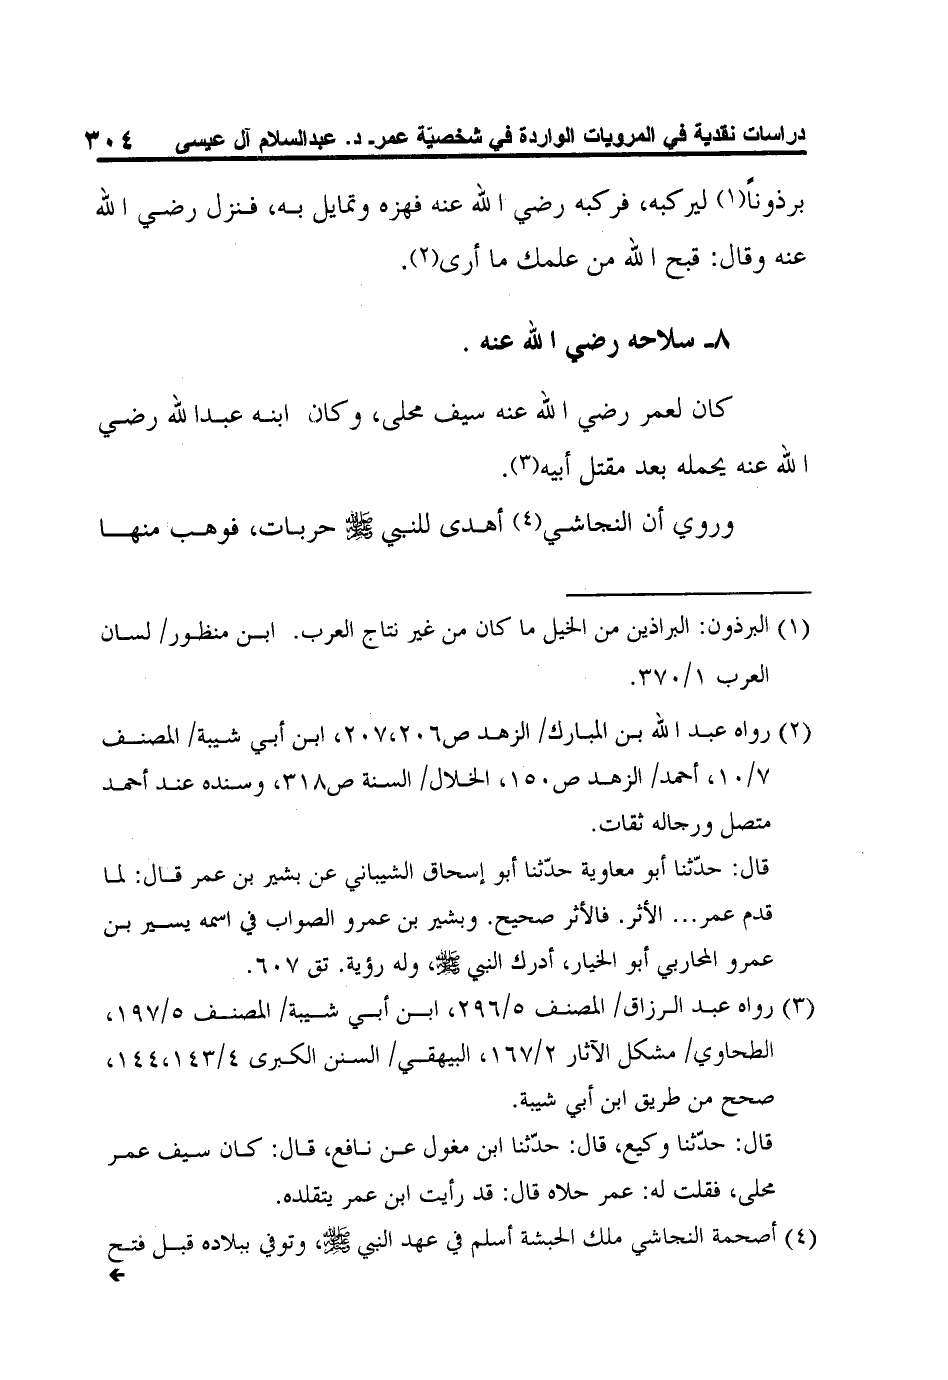 دراسات نقدية في المرويات الواردة في شخصيّة عمر ـ د. عبدالسلام آل عيسى ٣٠٤
برذوناً(١) ليركبه، فركبه رضي الله عنه فهزه وتمايل به، فنزل رضي الله
عنه وقال: قبح الله من علمك ما أرى(٢).
٨ـ سلاحه رضي الله عنه .
كان لعمر رضي الله عنه سيف محلى، وكان ابنه عبدالله رضي
الله عنه يحمله بعد مقتل أبيه(٣).
وروي أن النجاشي(٤) أهدى للنبي ﷺ حربات، فوهب منها
(١) البرذون: البراذين من الخيل ما كان من غير نتاج العرب. ابن منظور/ لسان
العرب ٣٧٠/١.
(٢) رواه عبد الله بن المبارك/ الزهد ص٢٠٧،٢٠٦، ابن أبي شيبة/ المصنف
١٠/٧، أحمد/ الزهد ص١٥٠، الخلال/ السنة ص٣١٨، وسنده عند أحمد
متصل ورجاله ثقات.
قال: حدّثنا أبو معاوية حدّثنا أبو إسحاق الشيباني عن بشير بن عمر قال: لما
قدم عمر... الأثر. فالأثر صحيح. وبشير بن عمرو الصواب في اسمه يسير بن
عمرو المحاربي أبو الخيار، أدرك النبي ﷺ، وله رؤية. تق ٦٠٧.
(٣) رواه عبد الرزاق/ المصنف ٢٩٦/٥، ابن أبي شيبة/ المصنف ١٩٧/٥،
الطحاوي/ مشكل الآثار ١٦٧/٢، البيهقي/ السنن الكبرى ١٤٤،١٤٣/٤،
صحح من طريق ابن أبي شيبة.
قال: حدّثنا وكيع، قال: حدّثنا ابن مغول عن نافع، قال: كان سيف عمر
محلى، فقلت له: عمر حلاه قال: قد رأيت ابن عمر يتقلده.
(٤) أصحمة النجاشي ملك الحبشة أسلم في عهد النبي ﷺ، وتوفي ببلاده قبل فتح
←